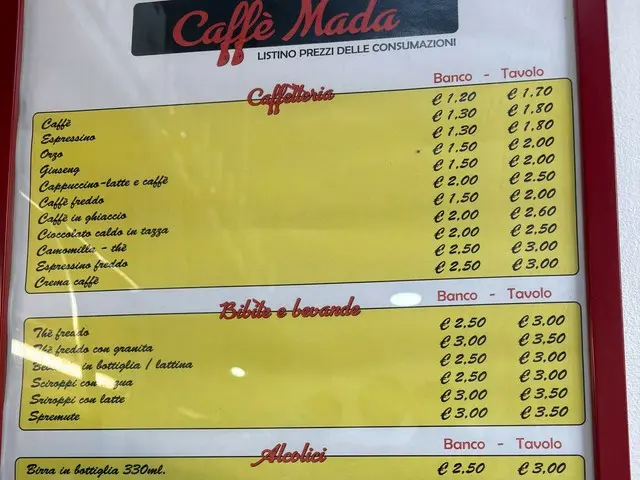 Caffè Mada
LISTINO PREZZI DELLE CONSUMAZIONI
Caffetteria Banco - Tavolo
Caffè € 1.20 € 1.70
Espressino € 1.30 € 1.80
Orzo € 1.30 € 1.80
Ginseng € 1.50 € 2.00
Cappuccino-latte e caffè € 1.50 € 2.00
Caffè freddo € 2.00 € 2.50
Caffè in ghiaccio € 1.50 € 2.00
Cioccolato caldo in tazza € 2.00 € 2.60
Camomilla - thè € 2.00 € 2.50
Espressino freddo € 2.50 € 3.00
Crema caffè € 2.50 € 3.00
Bibite e bevande Banco - Tavolo
Thè freddo € 2.50 € 3.00
Thè freddo con granita € 3.00 € 3.50
in bottiglia / lattina € 2.50 € 3.00
Sciroppi con € 2.50 € 3.00
Sriroppi con latte € 3.00 € 3.50
Spremute € 3.00 € 3.50
Alcolici Banco - Tavolo
Birra in bottiglia 330ml. € 2.50 € 3.00